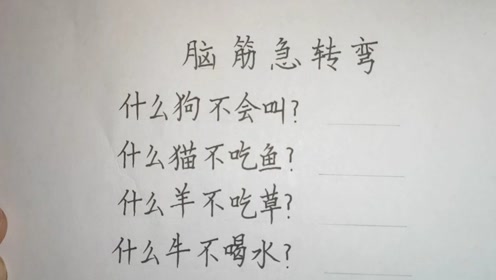 脑筋急转弯
什么狗不会叫?
什么猫不吃鱼?
什么羊不吃草?
什么牛不喝水?